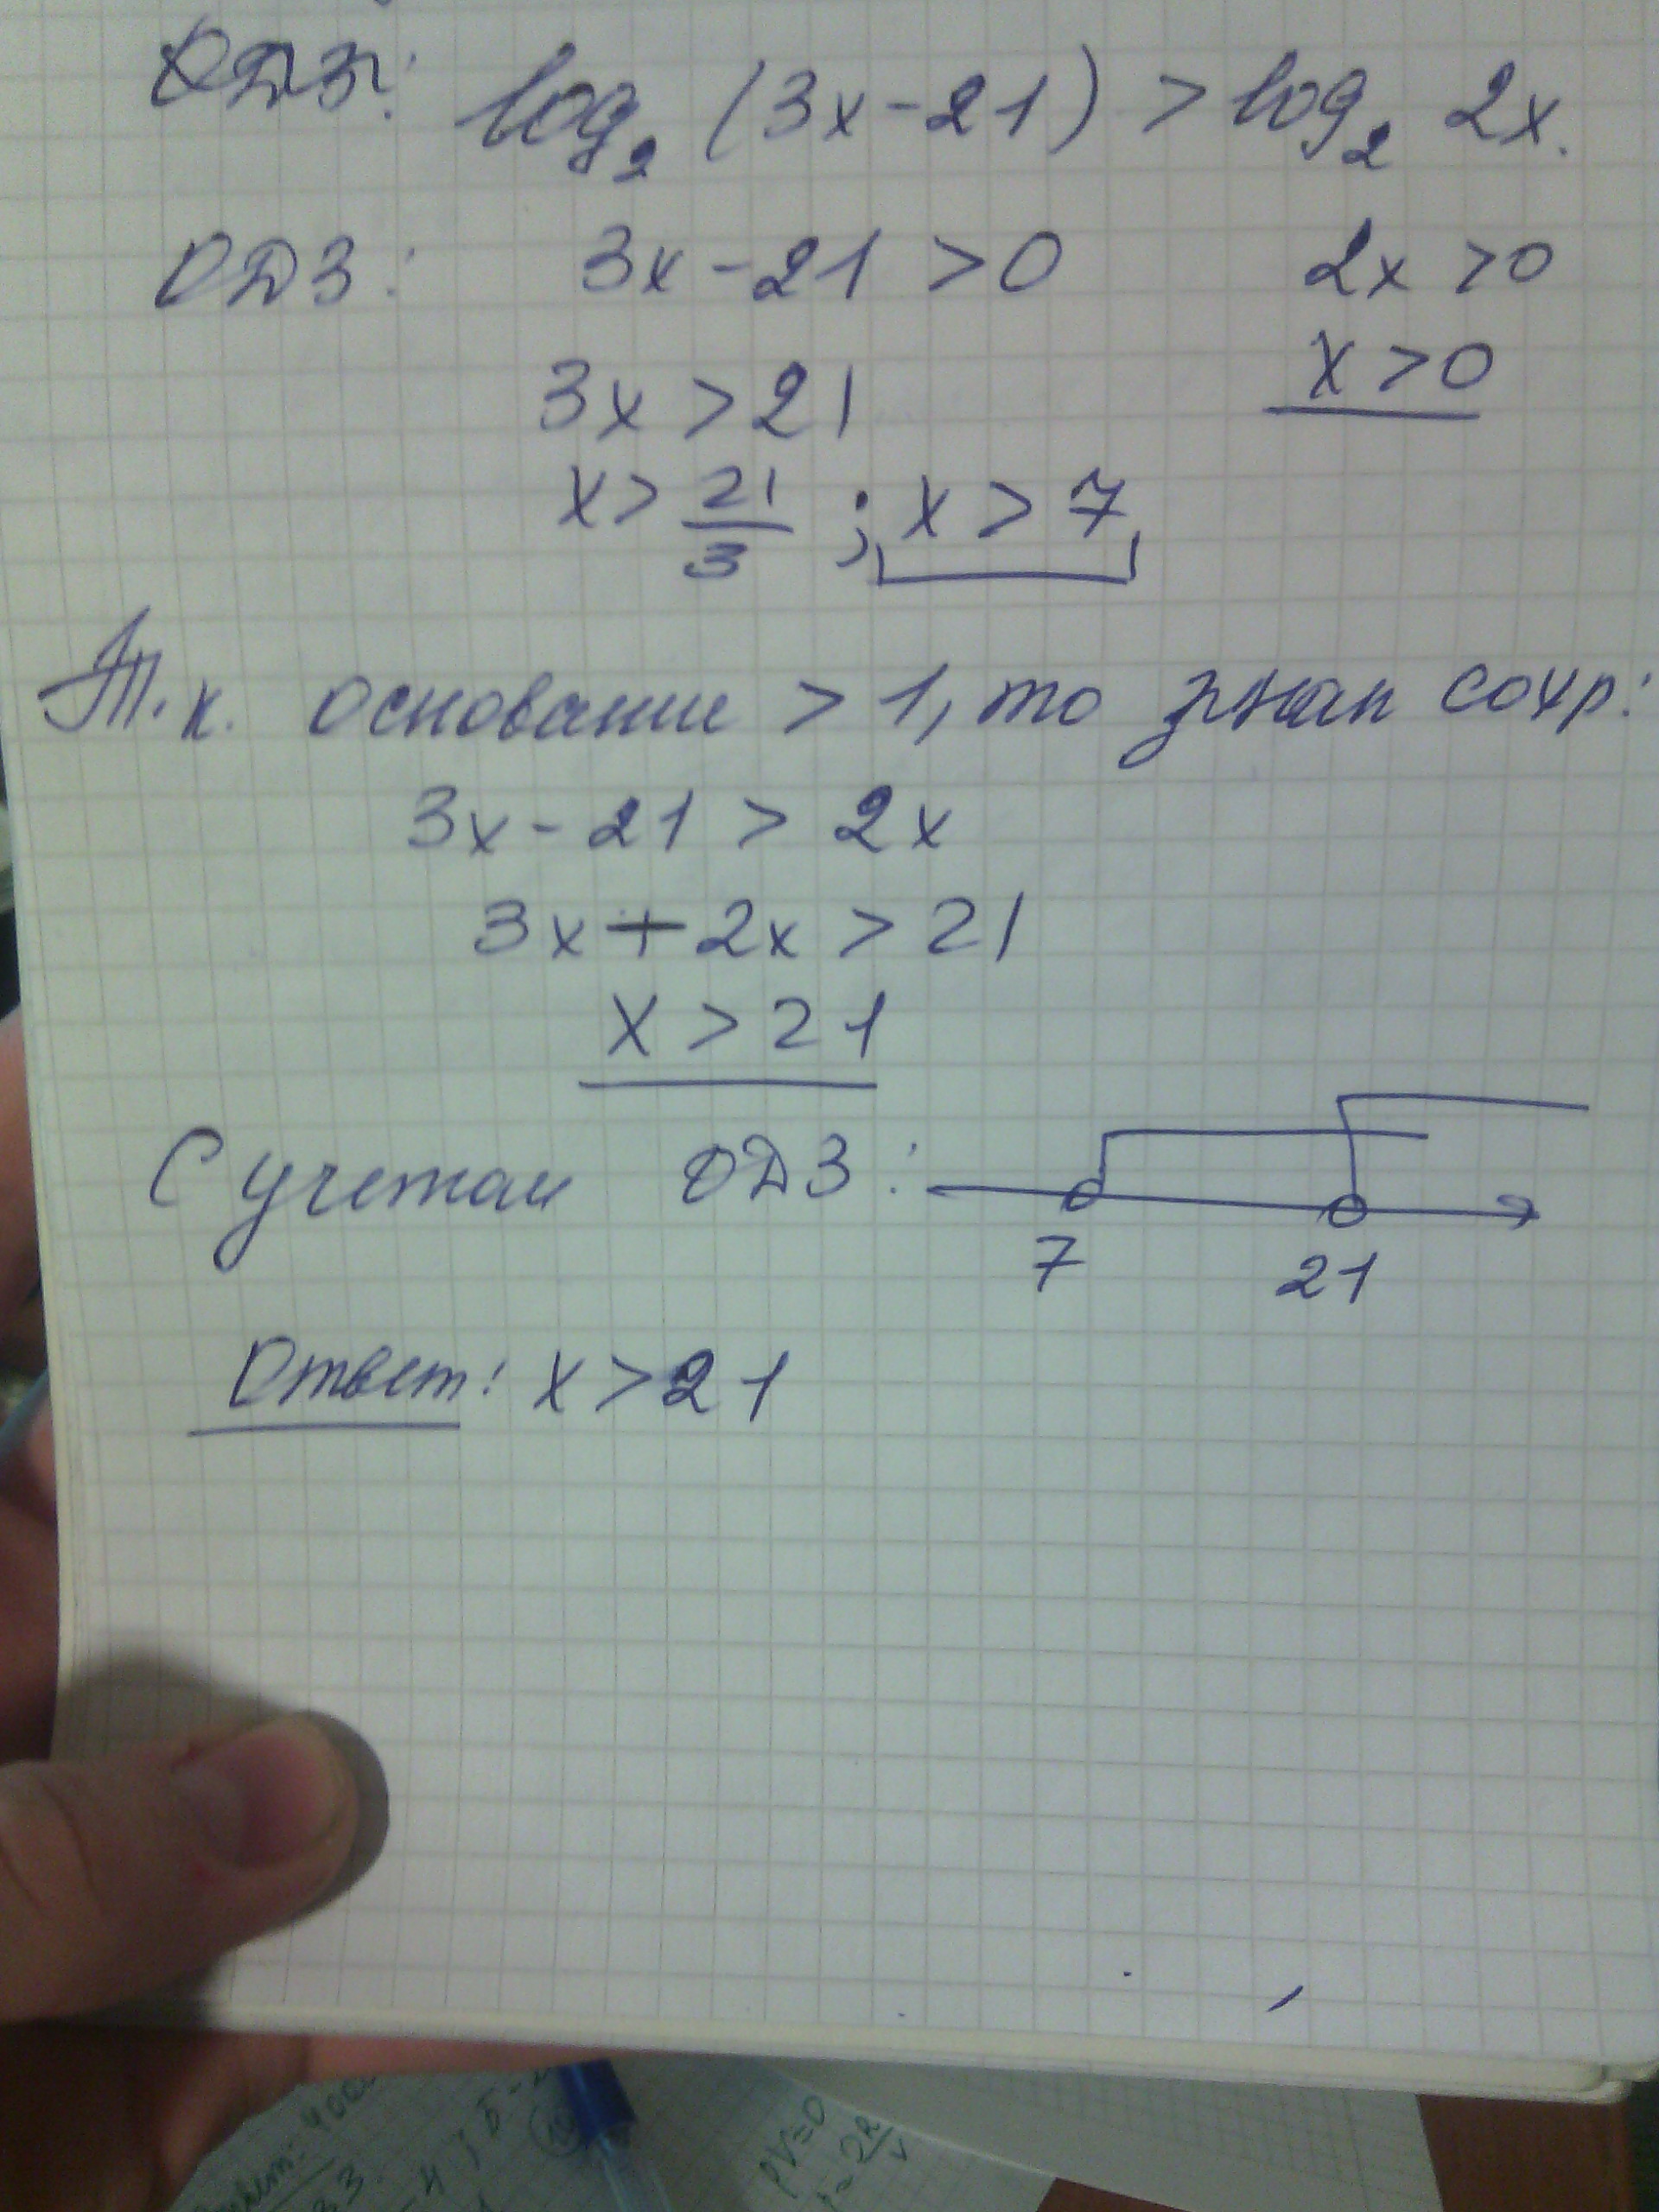 ОДЗ: log₂ (3x - 21) > log₂ 2x.
ОДЗ: 3x - 21 > 0 2x > 0
3x > 21 x > 0
x > 21/3 ; x > 7
Т.к. основание > 1, то знак сохр:
3x - 21 > 2x
3x + 2x > 21
x > 21
С учетом ОДЗ:
7 21
Ответ: x > 21
PV=0